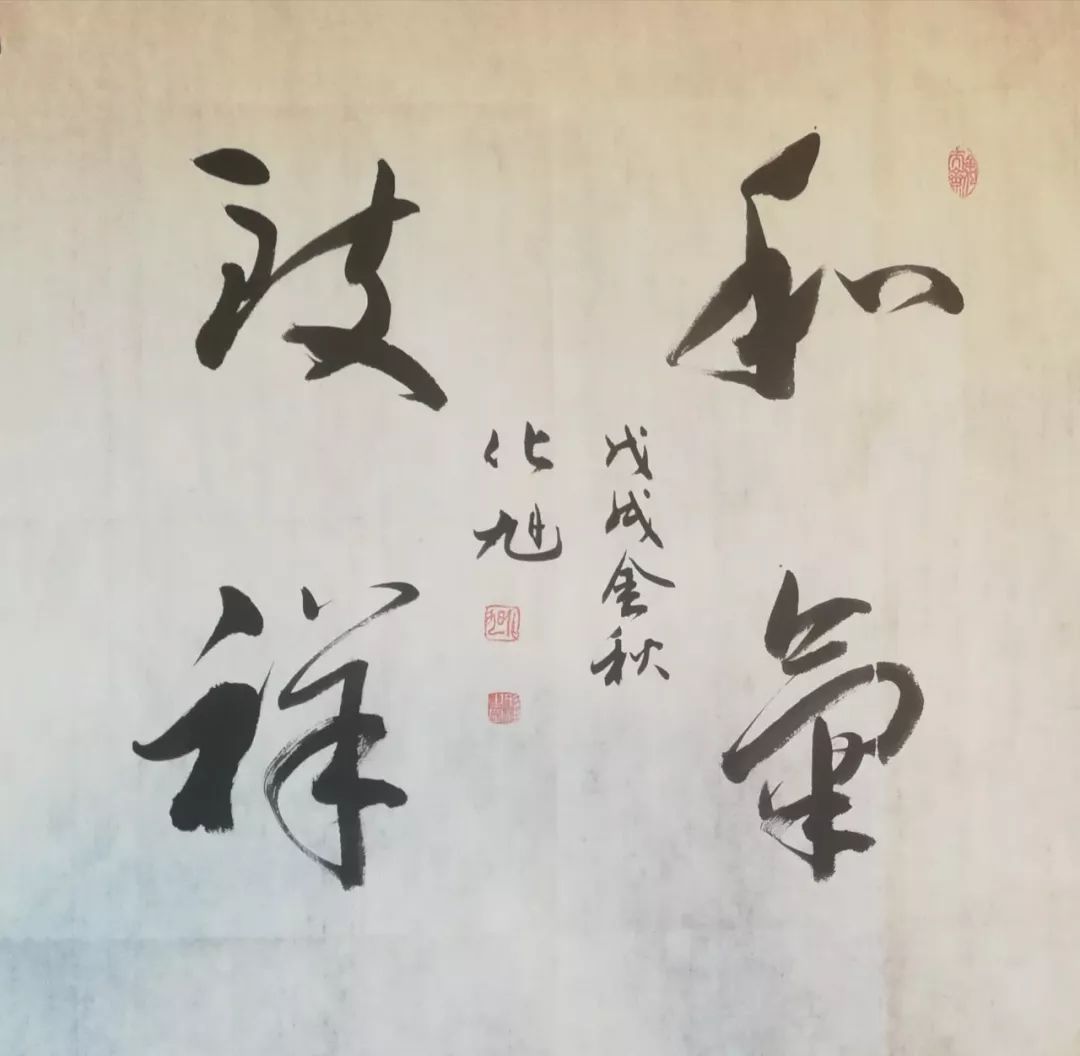 和氣
致祥
戊戌金秋
化旭